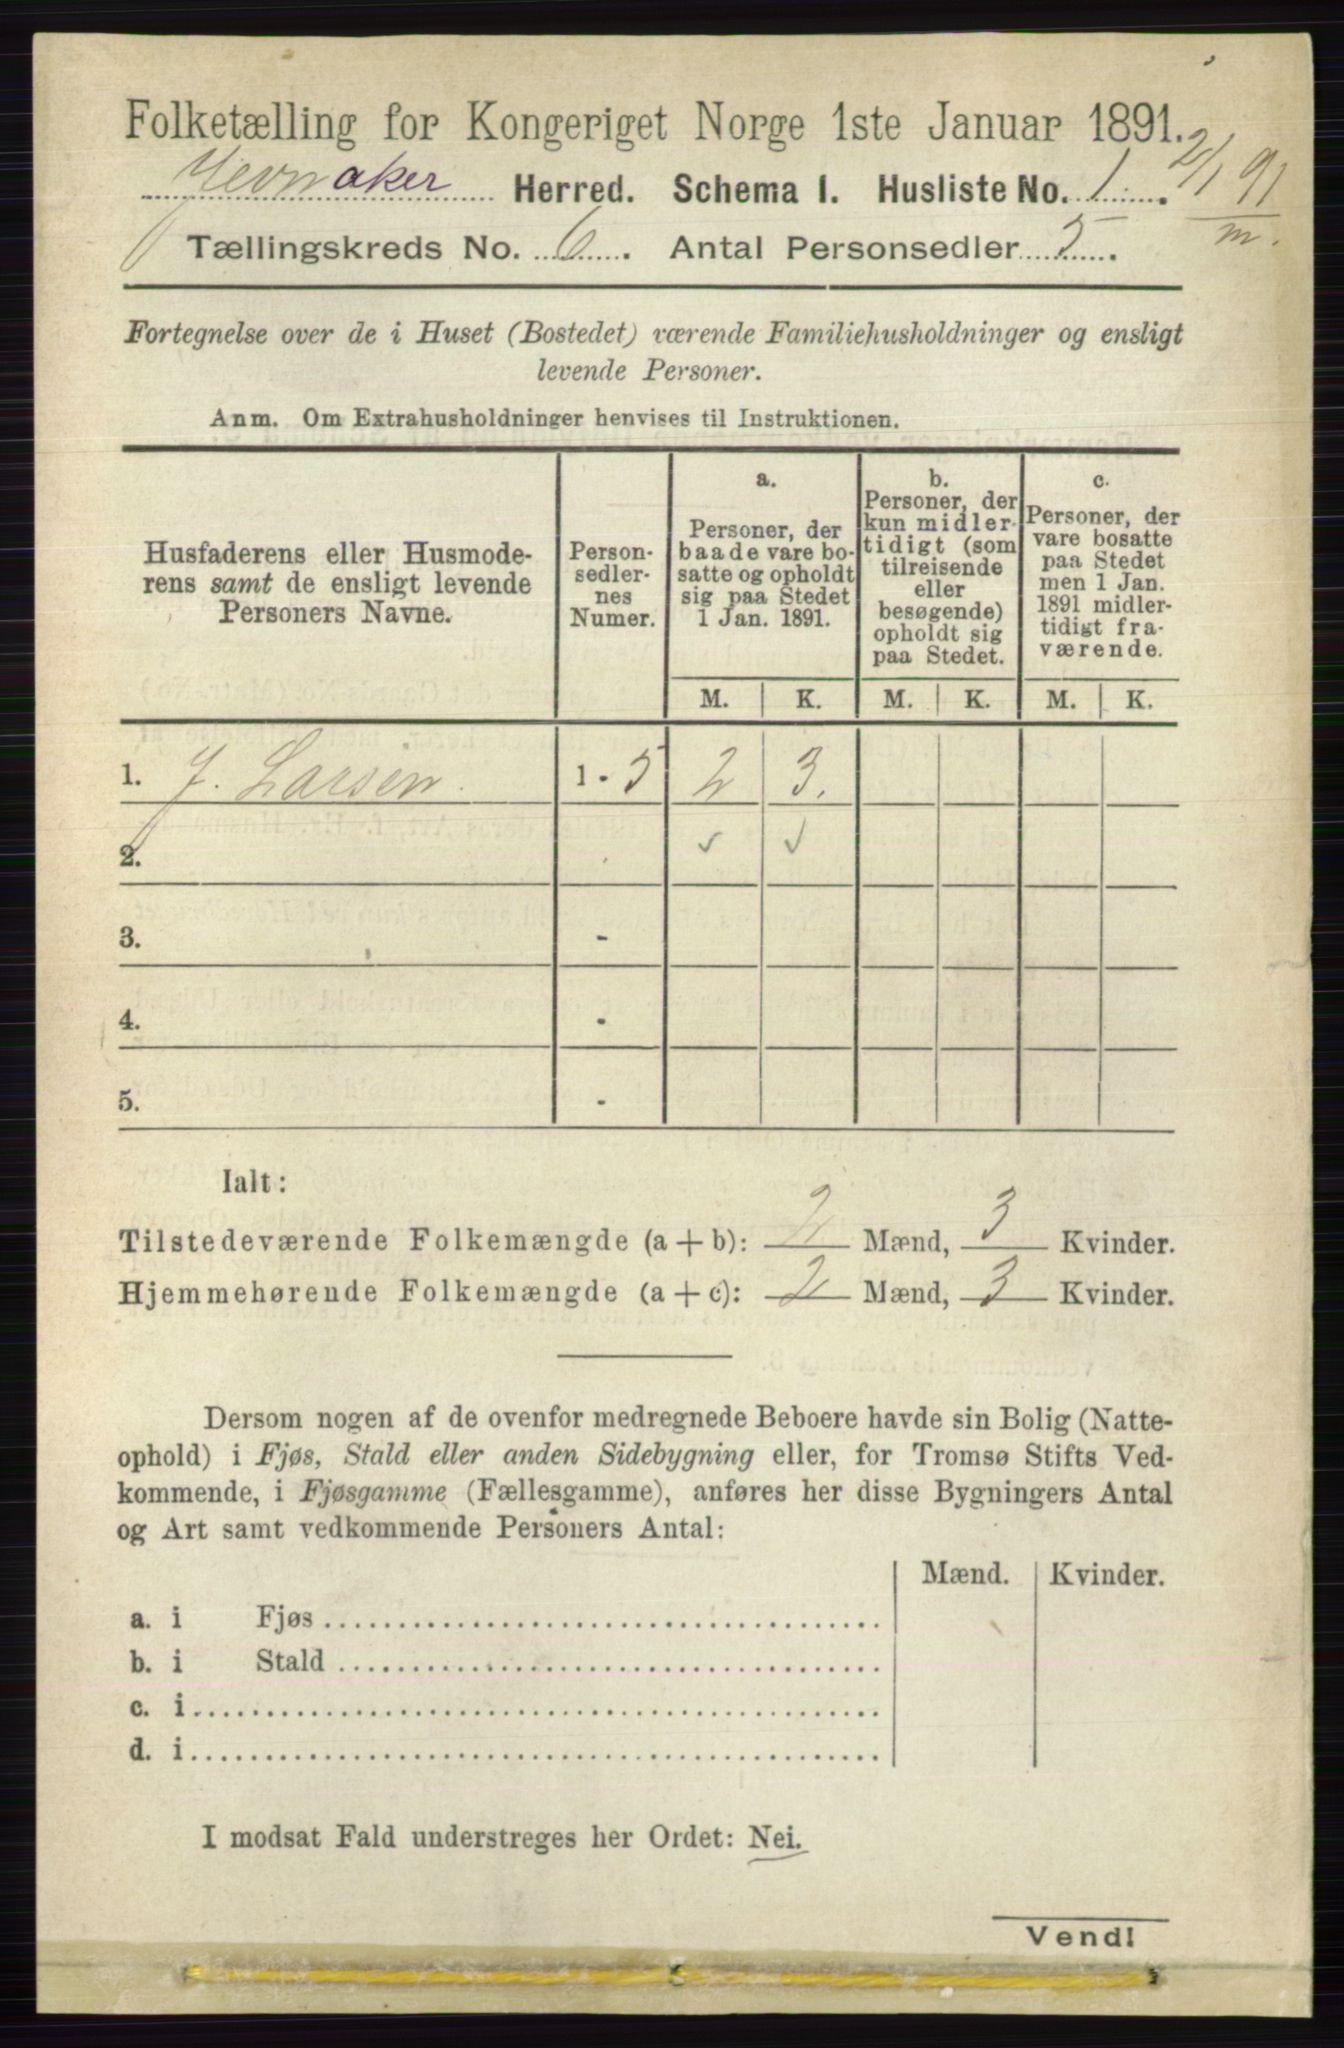 Folketælling for Kongeriget Norge 1ste Januar 1891.
2/1 91
m.
Jevnaker Herred. Schema 1. Husliste No. 1.
Tællingskreds No. 6. Antal Personsedler 5.
Fortegnelse over de i Huset (Bostedet) værende Familiehusholdninger og ensligt
levende Personer.
Anm. Om Extrahusholdninger henvises til Instruktionen.
Husfaderens eller Husmode-
rens samt de ensligt levende
Personers Navne.
Person-
sedler-
nes
Numer.
a.
Personer, der
baade vare bo-
satte og opholdt
sig paa Stedet
1 Jan. 1891.
b.
Personer, der
kun midler-
tidigt (som
tilreisende
eller
besøgende)
opholdt sig
paa Stedet.
c.
Personer, der
vare bosatte
paa Stedet
men 1 Jan.
1891 midler-
tidigt fra-
værende.
M. K. M. K. M. K.
1. J. Larsen. 1 - 5 2 3.
2. ✓ ✓
3. -
4. -
5. -
Ialt:
Tilstedeværende Folkemængde (a + b): 2 Mænd, 3 Kvinder.
Hjemmehørende Folkemængde (a + c): 2 Mænd, 3 Kvinder.
Dersom nogen af de ovenfor medregnede Beboere havde sin Bolig (Natte-
ophold) i Fjøs, Stald eller anden Sidebygning eller, for Tromsø Stifts Ved-
kommende, i Fjøsgamme (Fællesgamme), anføres her disse Bygningers Antal
og Art samt vedkommende Personers Antal:
Mænd. Kvinder.
a. i Fjøs
b. i Stald
c. i
d. i
I modsat Fald understreges her Ordet: Nei.
Vend!